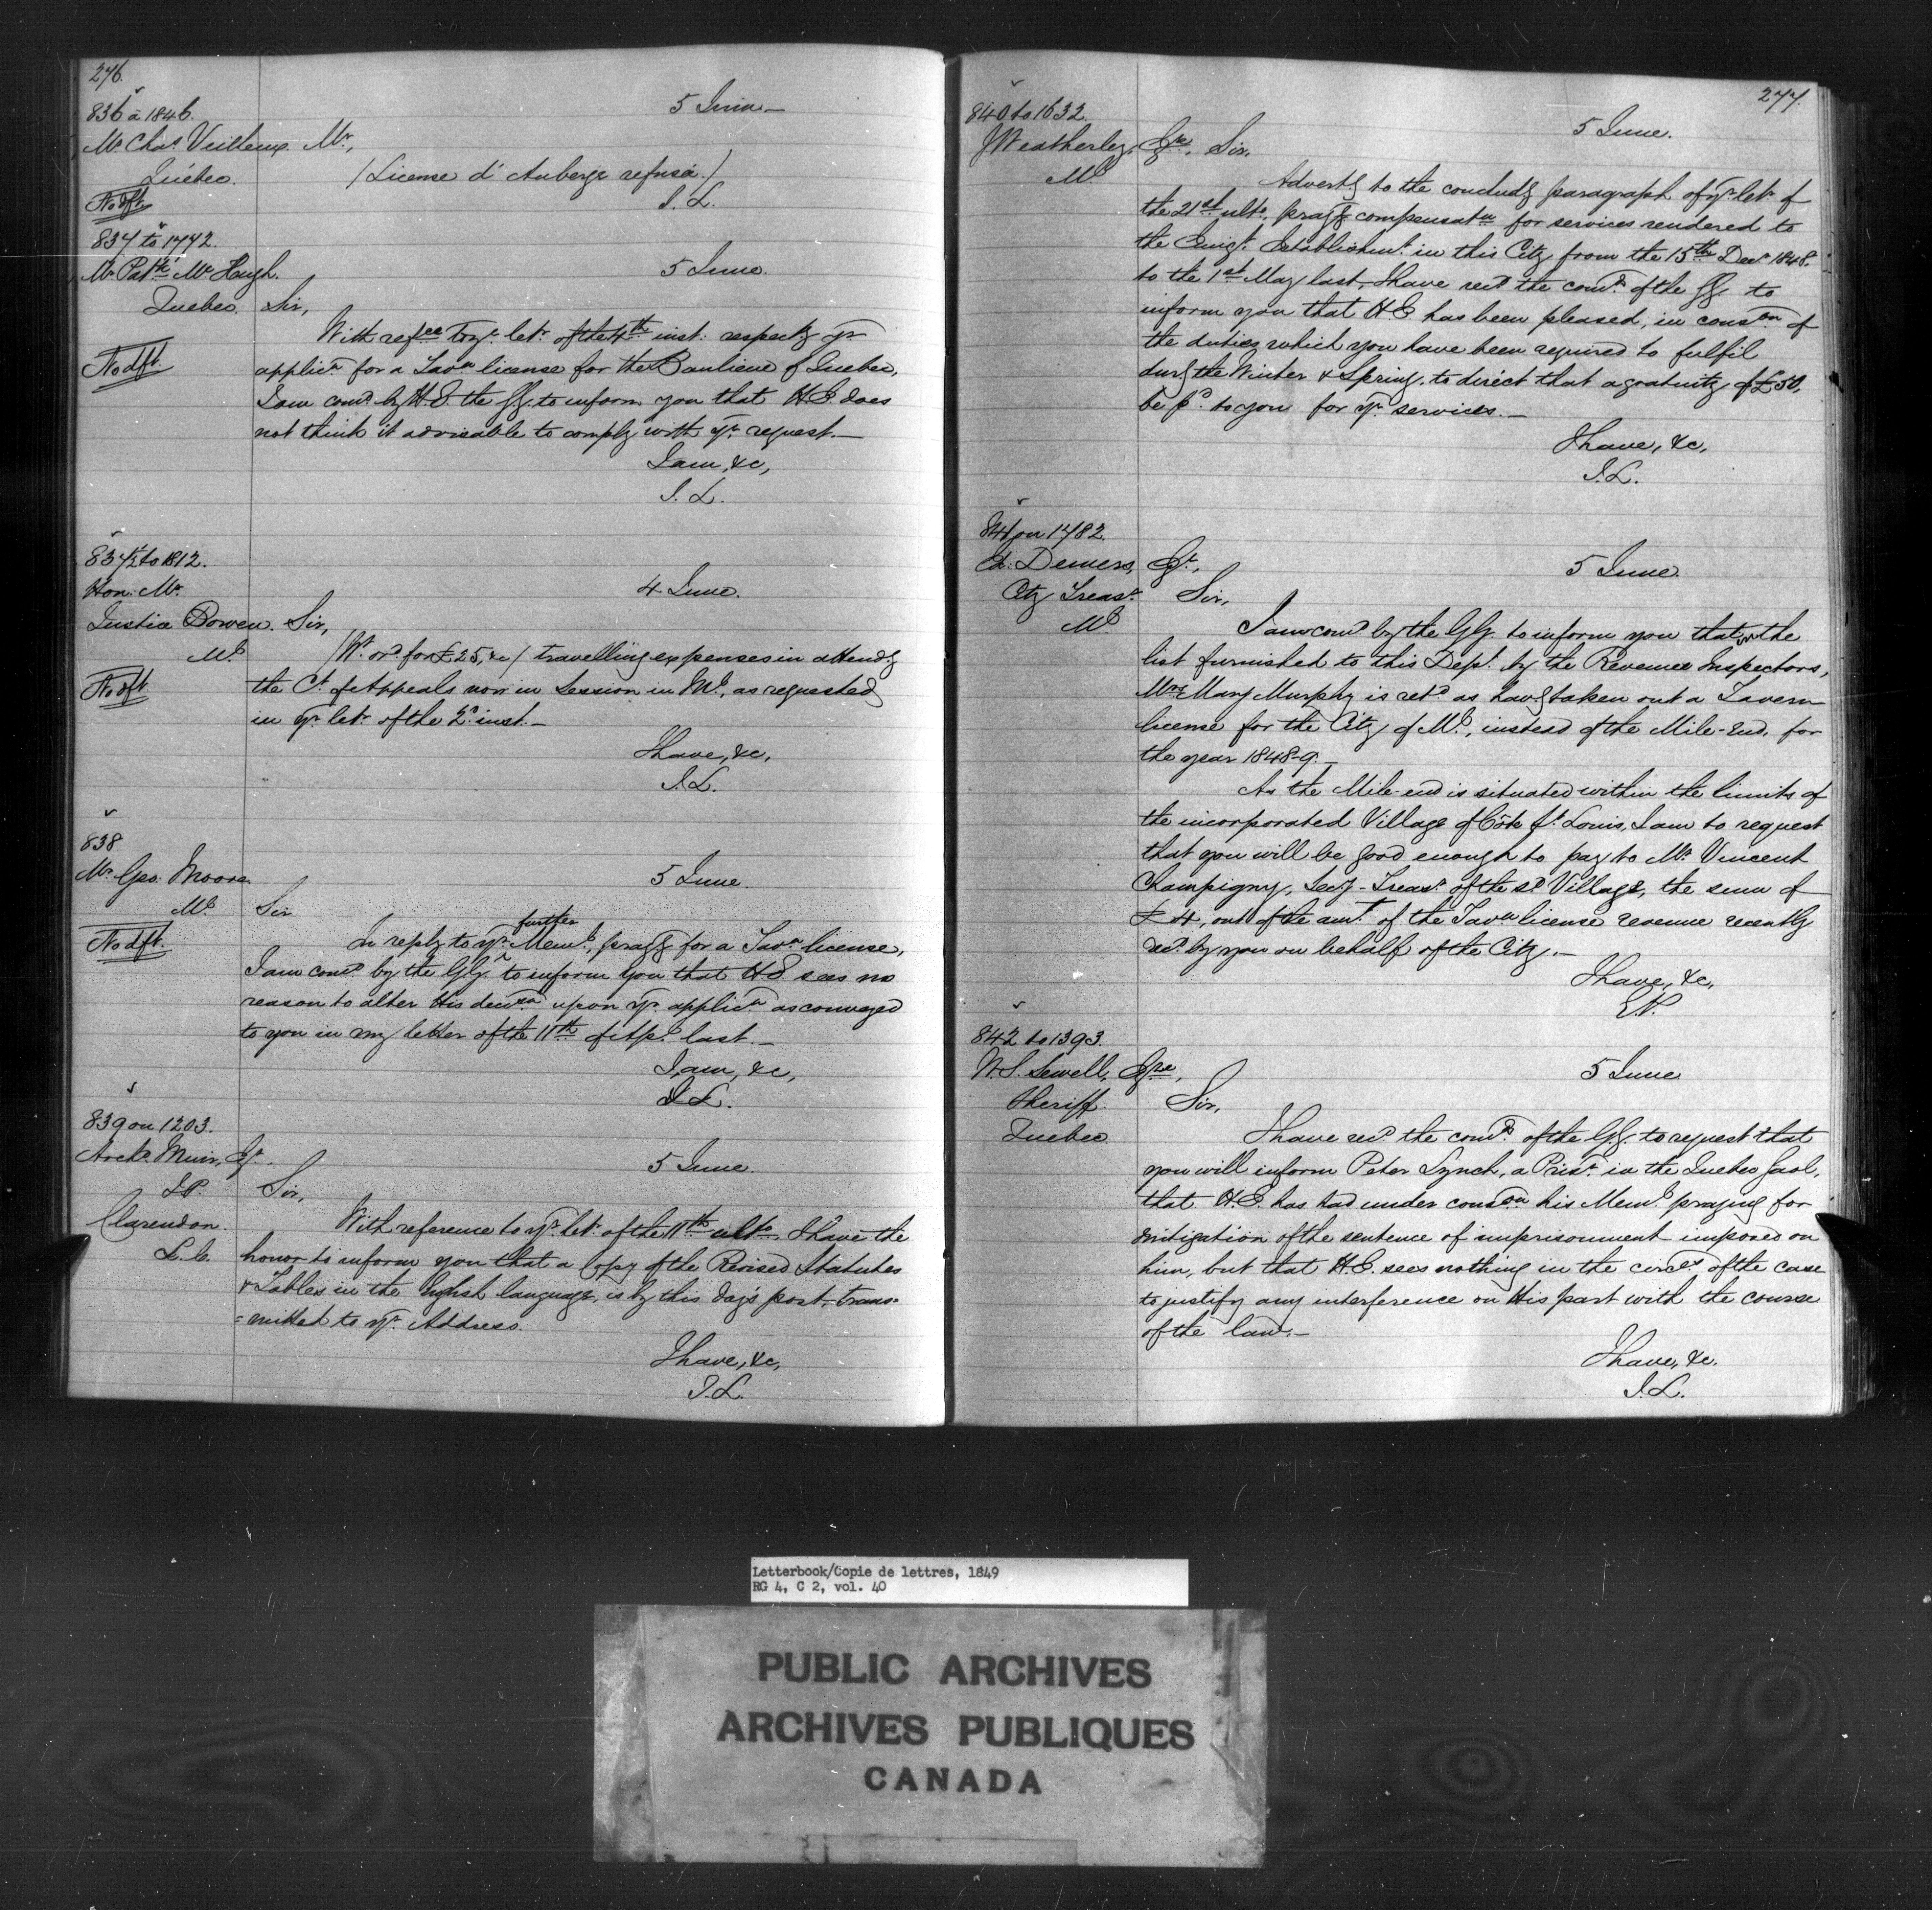 276.
836 a 1846.
5 Juin —
Mr. Chas. Veilleux Mr.,
Québec.
(License d'Auberge refusée.)
No dft.
J. L.
837 to 1772.
5 June.
Mr. Patk. McHugh.
Quebec.
Sir,
No dft.
With refce. to yr. let. of the 4th inst: respectg yr
applicn. for a Tavn. license for the Banlieue of Quebec,
I am comd. by H.E. the G.G. to inform you that H.E. does
not think it advisable to comply with yr. request. —
I am, &c,
J. L.
837½ to 1812.
4 June.
Hon. Mr.
Justice Bowen. Sir,
Ml.
No dft
(Wt. ord. for £25, &c) travelling expenses in attendg
the Ct. of Appeals now in Session in Ml., as requested
in yr. let. of the 2d. inst. —
I have, &c,
J. L.
838
5 June.
Mr. Geo. Moore
Ml.
Sir
No dft.
In reply to yr. further Meml., prayg for a Tavn. license,
I am comd. by the G.G. to inform you that H.E. sees no
reason to alter His decison upon yr. applicn. as conveyed
to you in my letter of the 11th of Apl. last. —
I am, &c,
J. L.
839 on 1203.
5 June.
Archd. Muir, Et.
J.P.
Clarendon.
L. C.
Sir,
With reference to yr. let. of the 11th ulto. I have the
honor to inform you that a Copy of the Revised Statutes
& Tables in the English language, is by this day's post, trans=
=mitted to yr. Address.
I have, &c,
J. L.
277.
840 to 1632.
5 June.
J Weatherley, Eqre. Sir,
Ml
Advertg to the concludg paragraph of yr. let. of
the 21st. ulto., prayg compensatn. for services rendered to
the Emigt. Establishmt. in this City from the 15th. Decr. 1848.
to the 1st May last, I have recd. the comds. of the G.G. to
inform you that H.E. has been pleased, in conson of
the duties which you have been required to fulfil
durg the Winter & Spring, to direct that a gratuity of £50,
be pd. to you for yr. services. —
I have, &c,
J. L.
841 on 1782.
5 June.
Ed. Demers, Et.,
City Treasr.
Ml
Sir,
I am comd. by the G.G. to inform you that on the
list furnished to this Dept. by the Revenue Inspectors,
Mrs Mary Murphy is retd. as havg taken out a Tavern
license for the City of Ml., instead of the Mile-End, for
the year 1848-9. —
As the Mile-end is situated within the limits of
the incorporated Village of Côte St. Louis, I am to request
that you will be good enough to pay to Mr. Vincent
Champigny, Secy.-Treasr. of the sd. Village, the sum of
£4, out of the amt. of the Tavn license revenue recently
recd. by you on behalf of the City. —
I have, &c,
E.P.
842 to 1393.
5 June
W.S. Sewell, Eqre,
Sheriff.
Quebec
Sir,
I have recd. the comds. of the G.G. to request that
you will inform Peter Lynch, a Prisr. in the Quebec Gaol,
that H.E. has had under conson his Meml. praying for
mitigation of the sentence of imprisonment imposed on
him, but that H.E. sees nothing in the circes. of the case
to justify any interference on His part with the course
of the law. —
I have, &c.
J. L.
Letterbook/Copie de lettres, 1849
RG 4, C 2, vol. 40
PUBLIC ARCHIVES
ARCHIVES PUBLIQUES
CANADA